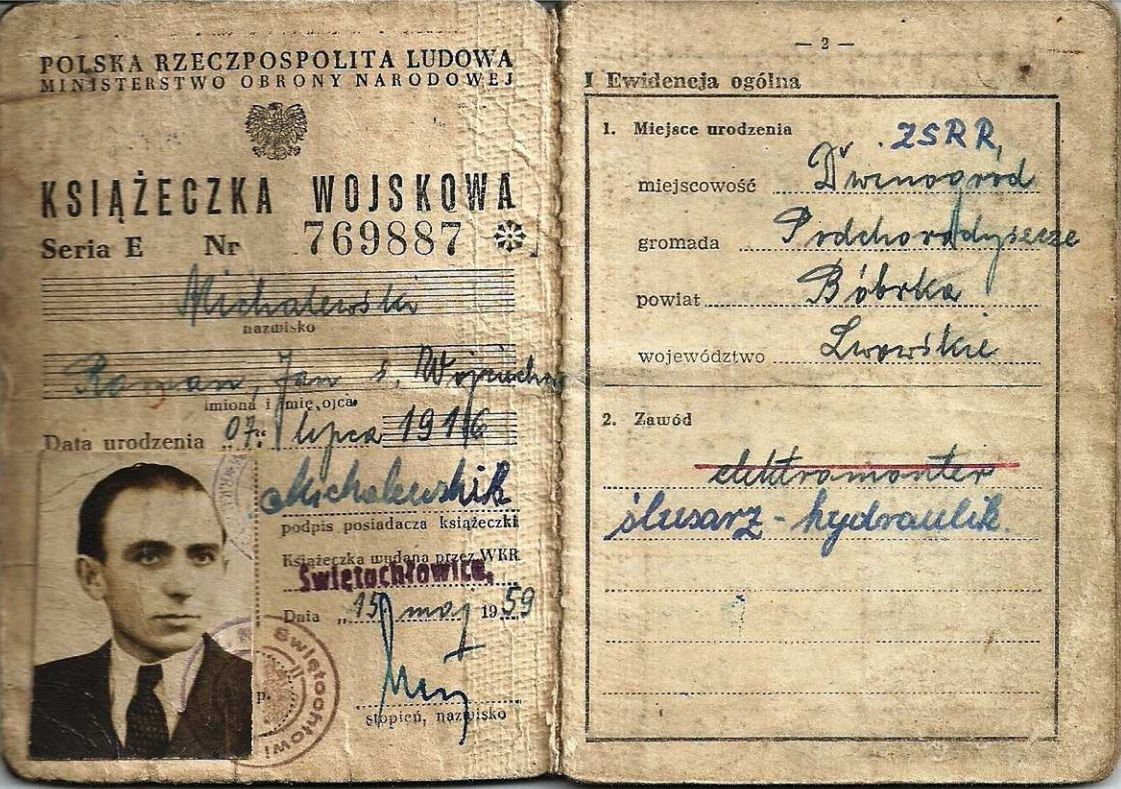 POLSKA RZECZPOSPOLITA LUDOWA
MINISTERSTWO OBRONY NARODOWEJ
KSIĄŻECZKA WOJSKOWA
Seria E Nr 769887
Michalewski
nazwisko
Roman, Jan s.
imiona i imię ojca
Data urodzenia „07" lipca 1916
Michalewski R
podpis posiadacza książeczki
Książeczka wydana przez WKR
Świętochłowice,
Dnia „15 maj 1959
p.
Świętochłowi
stopień, nazwisko
— 2 —
I Ewidencja ogólna
1. Miejsce urodzenia
ZSRR,
miejscowość Dźwinogród
gromada Podchorodyszcze
powiat Bóbrka
województwo Lwowskie
2. Zawód
elektromonter
ślusarz - hydraulik.